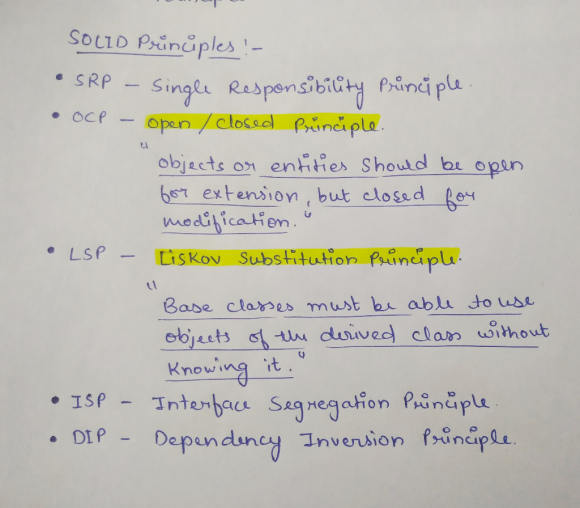 SOLID Principles :-
• SRP - Single Responsibility Principle.
• OCP - Open/closed Principle.
"Objects or entities should be open
for extension, but closed for
modification."
• LSP - Liskov Substitution Principle.
"Base classes must be able to use
objects of the derived class without
knowing it."
• ISP - Interface Segregation Principle.
• DIP - Dependency Inversion Principle.